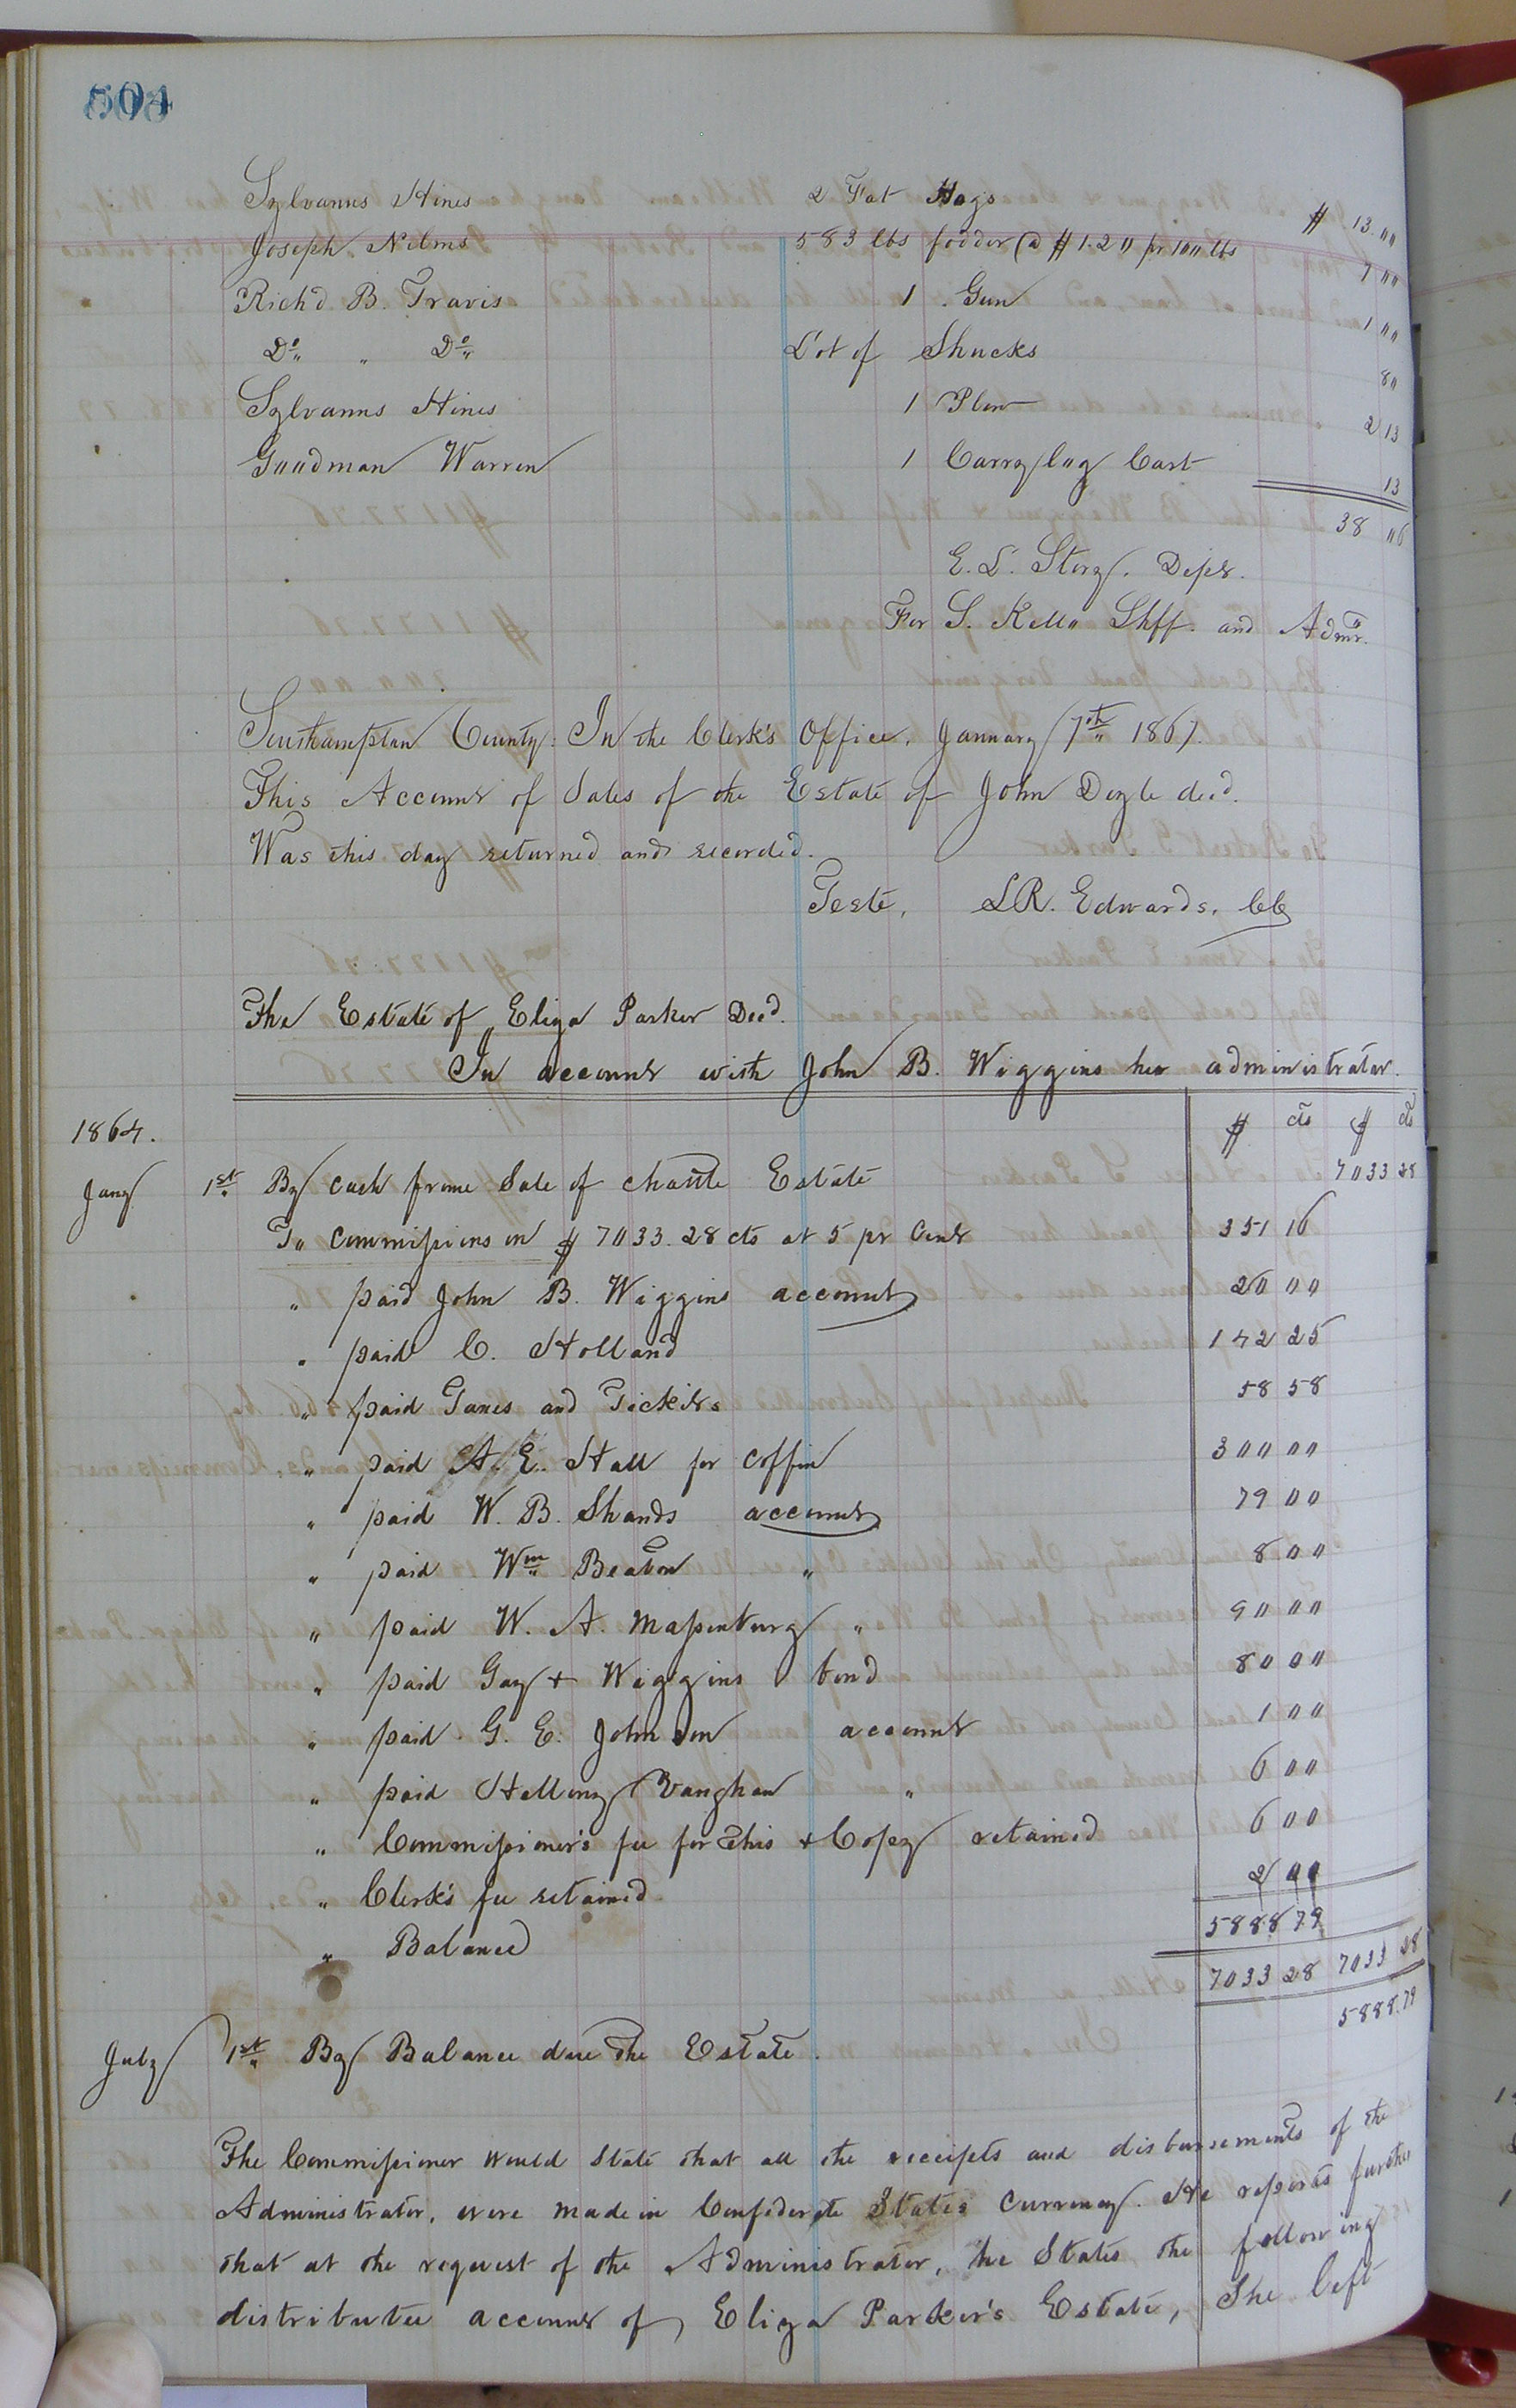 504
Sylvanus Hines 2 Fat Hogs $ 13.00
Joseph Nelms 583 lbs fodder @ $1.20 pr 100 lbs 7 00
Richd B. Travis 1 Gun 1 00
Do " Do Lot of Shucks 80
Sylvanus Hines 1 Plow 2 13
Goodman Warren 1 Carry log Cart 13
38 06
E. L. Story. Depr.
For S. Kello Shff. and Admr.
Southampton County: In the Clerk's Office, January 7th 1867.
This Account of Sales of the Estate of John Doyle decd.
Was this day returned and recorded.
Teste, L R. Edwards, CC
The Estate of Eliza Parker Decd.
In account with John B. Wiggins her administrator.
1864. $ cts $ cts
Jany 1st By cash frome Sale of chattle Estate 7033 28
To Commissions on $ 7033.28 cts at 5 pr Cent 351 16
" paid John B. Wiggins account 20 00
" paid C. Holland 142 25
" paid Taxes and Tickets 58 58
" paid A. E. Hall for coffin 300 00
" paid W. B. Shands account 79 00
" paid Wm Beaton " 8 00
" paid W. A. Massenburg " 90 00
" paid Gay & Wiggins bond 80 00
" paid G. E. Johnson account 1 00
" paid Vaughan " 6 00
" Commissioner's fee for this & Copy retained 6 00
" Clerk's fee retained 2 00
" Balance 5888 79
7033 28 7033 28
July 1st By Balance due the Estate. 5888.79
The Commissioner would State that all the receipts and disbursements of the
Administrator, were made in Confederate States Currency. He reports further
that at the request of the Administrator, he States the following
distributee account of Eliza Parker's Estate, She left